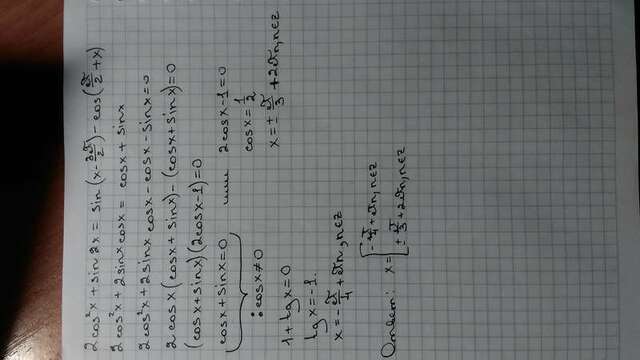 2cos²x + sin2x = sin(x - 3π/2) - cos(π/2 + x)
2cos²x + 2sinxcosx = cosx + sinx
2cos²x + 2sinx cosx - cosx - sinx = 0
2cosx(cosx + sinx) - (cosx + sinx) = 0
(cosx + sinx)(2cosx - 1) = 0
cosx + sinx = 0 или 2cosx - 1 = 0
: cosx ≠ 0 cosx = 1/2
1 + tgx = 0 x = ± π/3 + 2πn, n∈z
tgx = -1.
x = -π/4 + πn, n∈z
Ответ: x = [ -π/4 + πn, n∈z
± π/3 + 2πn, n∈z